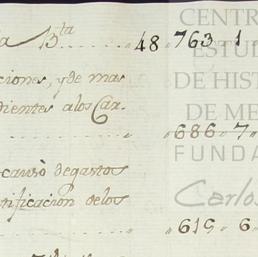 a 15ta ........ 48 763 1
ciones, y de mas
dientes a los Car-
........ " 686 " 7 "
causò de gastos
tificacion de los
........ " 615 " 6 "
CENTR
ESTU
DE HIST
DE ME
FUNDA
Carlos